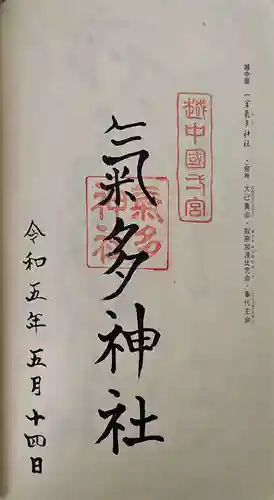 越中國 一宮氣多神社 ご祭神 大己貴命・奴奈加波比売命・事代主命
越中國一宮
氣多神社
氣多神社
令和五年五月十四日